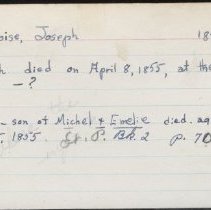 oise, Joseph 18
h. died on April 8, 1855, at the
- ?
- son of Michel & Emelie died. ag
1855 St. P. Bk. 2 p. 70